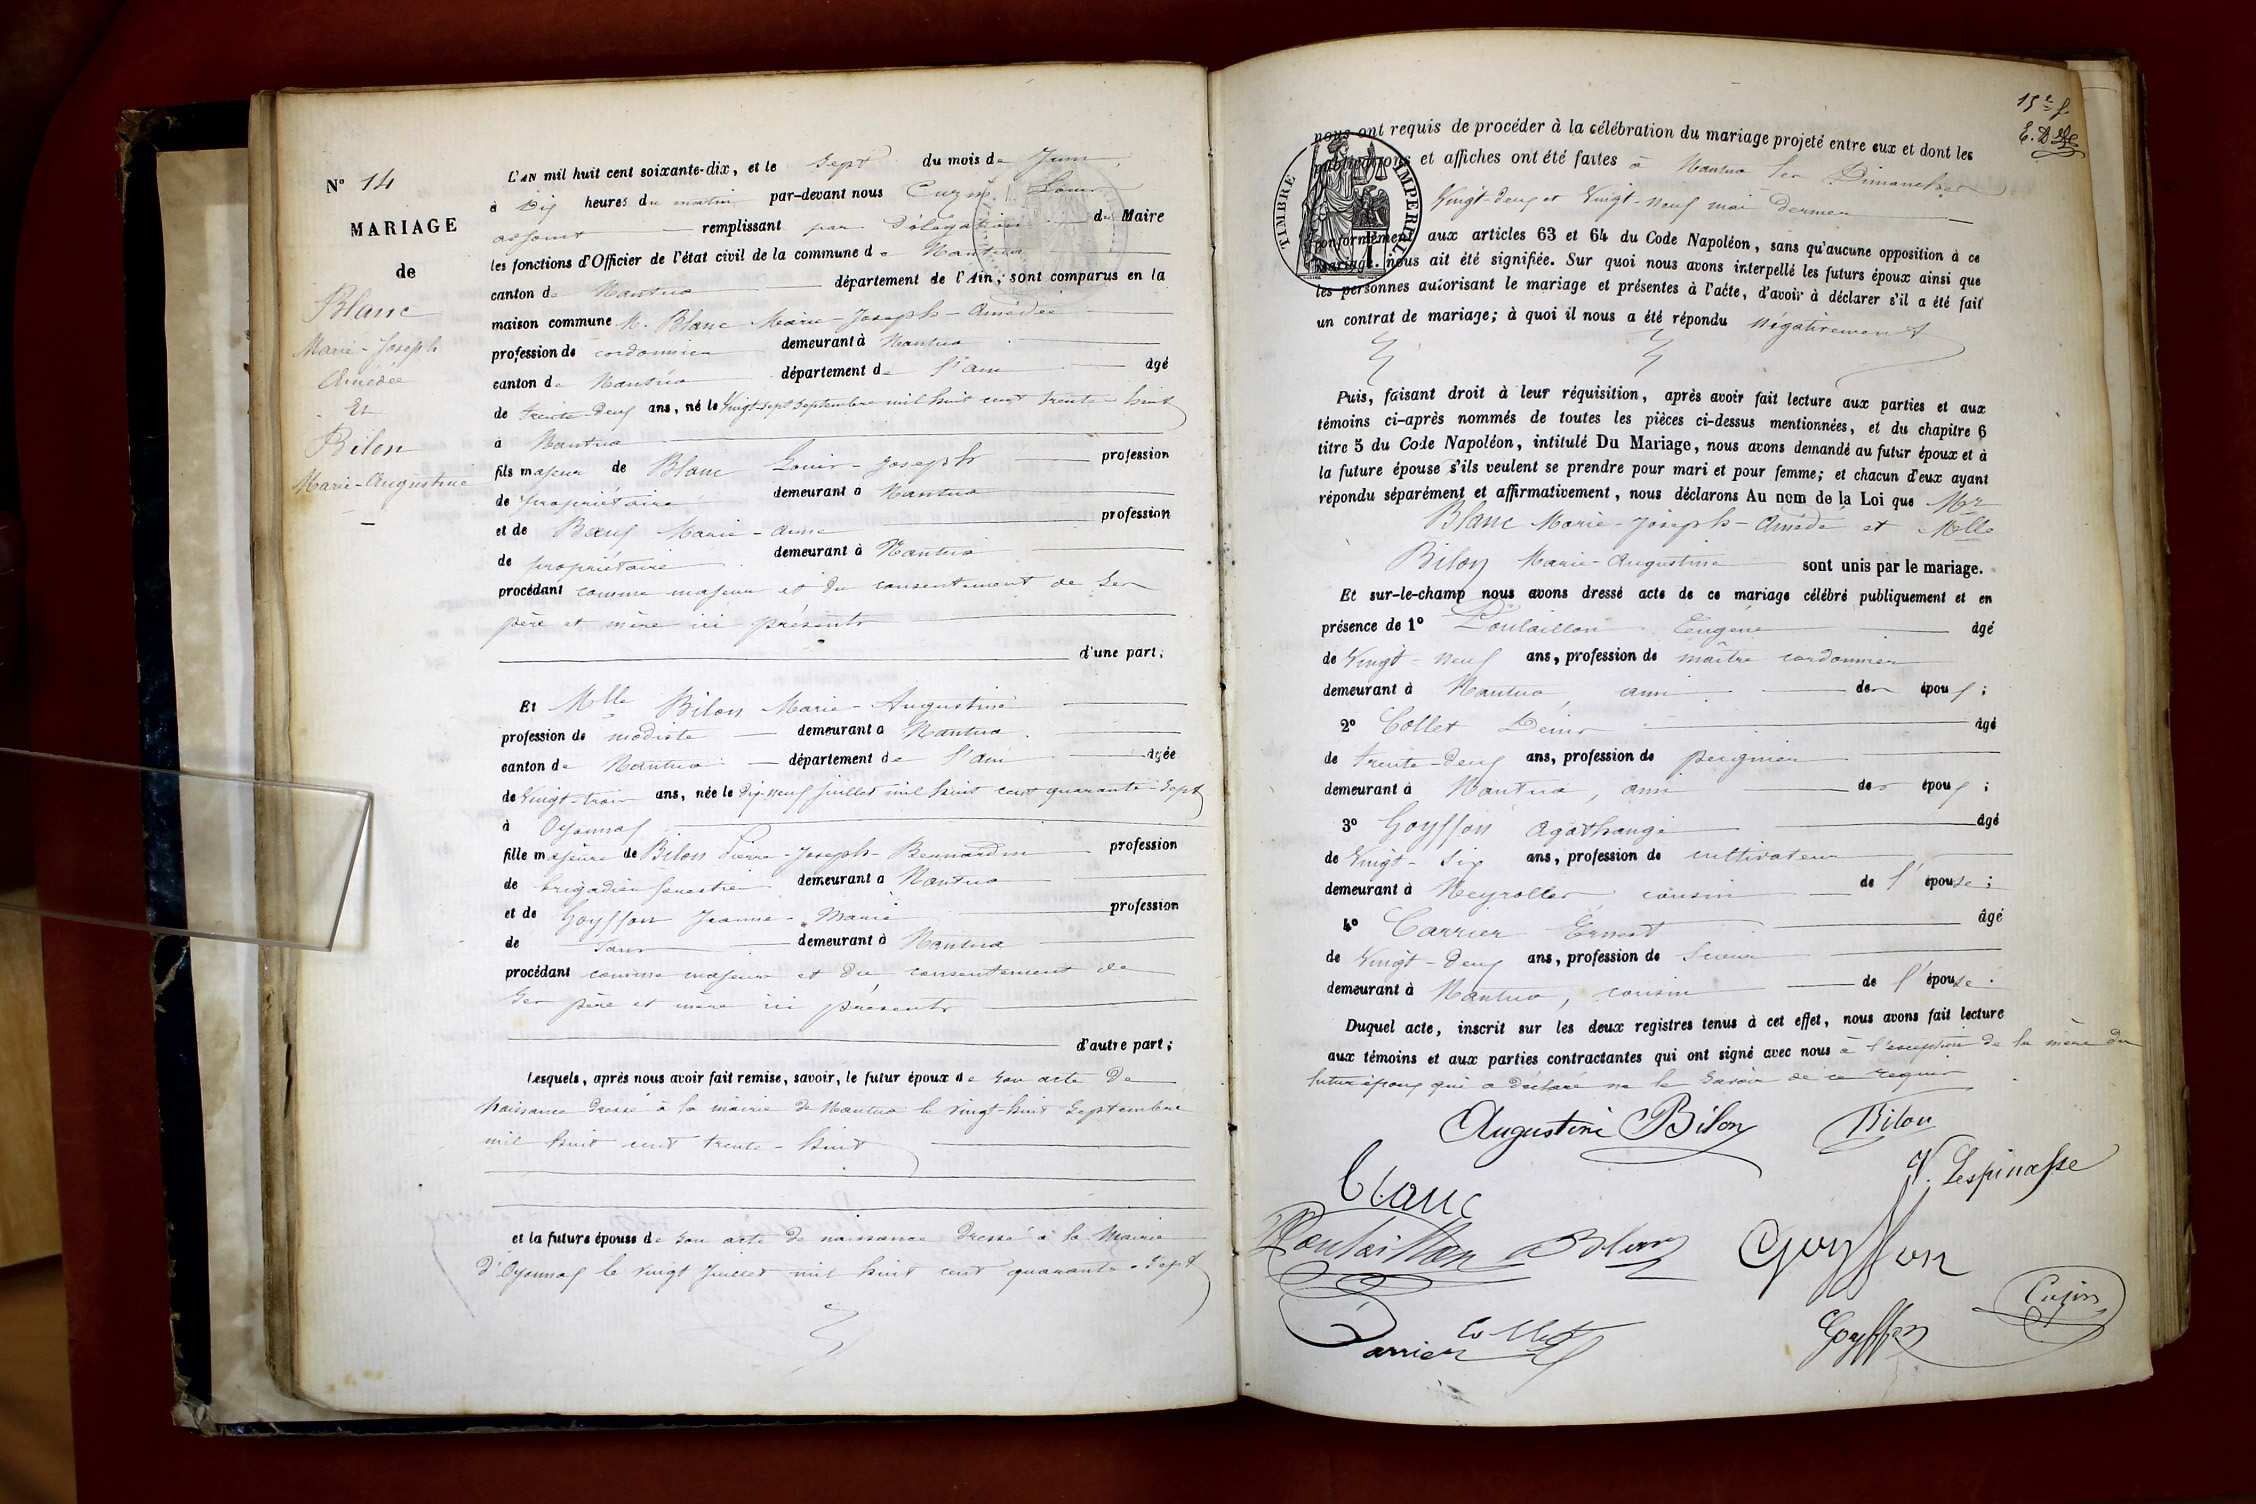 N° 14
MARIAGE
de
Blanc
Marie-Joseph
Amédée
Et
Bilon
Marie-Augustine
L'AN mil huit cent soixante-dix, et le Sept du mois de Juin
à Dix heures du matin par-devant nous Louis
adjoint remplissant par Délégation du Maire
les fonctions d'Officier de l'état civil de la commune de Nantua
canton de Nantua département de l'Ain; sont comparus en la
maison commune M. Blanc Marie-Joseph-Amédée
profession de cordonnier demeurant à Nantua
canton de Nantua département de l'ain âgé
de trente-deux ans, né le Vingt-sept Septembre mil huit cent trente-huit
à Nantua
fils majeur de Blanc Louis-Joseph profession
de propriétaire demeurant à Nantua
et de Bœuf Marie-anne profession
de propriétaire demeurant à Nantua
procédant comme majeur et du consentement de Ses
père et mère ici présents
d'une part;
Et Melle Bilon Marie-Augustine
profession de modiste demeurant à Nantua
canton de Nantua département de l'ain âgée
de Vingt-trois ans, née le Dix-neuf juillet mil huit cent quarante-Sept
à Oyonnax
fille majeure de Bilon Pierre-Joseph-Bernardin profession
de brigadier forestier demeurant à Nantua
et de Goyffon Jeanne-Marie profession
de Sans demeurant à Nantua
procédant comme majeure et du consentement de
Ses père et mère ici présents
d'autre part;
Lesquels, après nous avoir fait remise, savoir, le futur époux de Son acte De
Naissance dressé à la mairie de Nantua le vingt-huit Septembre
mil huit cent trente-huit
et la future épouse de Son acte de naissance Dressé à la Mairie
d'Oyonnax le vingt Juillet mil huit cent quarante-Sept
15e f
nous ont requis de procéder à la célébration du mariage projeté entre eux et dont les
publications et affiches ont été faites à Nantua les Dimanches
Vingt-deux et Vingt-Neuf mai Dernier
TIMBRE IMPERIAL
conformément aux articles 63 et 64 du Code Napoléon, sans qu'aucune opposition à ce
mariage nous ait été signifiée. Sur quoi nous avons interpellé les futurs époux ainsi que
les personnes autorisant le mariage et présentes à l'acte, d'avoir à déclarer s'il a été fait
un contrat de mariage; à quoi il nous a été répondu Négativement
Puis, faisant droit à leur réquisition, après avoir fait lecture aux parties et aux
témoins ci-après nommés de toutes les pièces ci-dessus mentionnées, et du chapitre 6
titre 5 du Code Napoléon, intitulé Du Mariage, nous avons demandé au futur époux et à
la future épouse s'ils veulent se prendre pour mari et pour femme; et chacun d'eux ayant
répondu séparément et affirmativement, nous déclarons Au nom de la Loi que Mr
Blanc Marie-Joseph-Amédé et Melle
Bilon Marie-Augustine sont unis par le mariage.
Et sur-le-champ nous avons dressé acte de ce mariage célébré publiquement et en
présence de 1° Poulaillon Eugène âgé
de Vingt-Neuf ans, profession de maître cordonnier
demeurant à Nantua, ami des époux;
2° Collet Denis âgé
de trente-Deux ans, profession de peignier
demeurant à Nantua, ami des époux;
3° Goyffon Agathange âgé
de Vingt-Six ans, profession de cultivateur
demeurant à Neyrolles, cousin de l'épouse;
4° Carrier Ernest âgé
de Vingt-Deux ans, profession de Scieur
demeurant à Nantua, cousin de l'épouse.
Duquel acte, inscrit sur les deux registres tenus à cet effet, nous avons fait lecture
aux témoins et aux parties contractantes qui ont signé avec nous à l'exception de la mère du
futur époux qui a déclaré ne le Savoir de ce requis
Augustine Bilon Bilon
V. Lespinasse
Blanc
Poulaillon Blanc Goyffon
Cuzin
Collet
Carrier
Goyffon